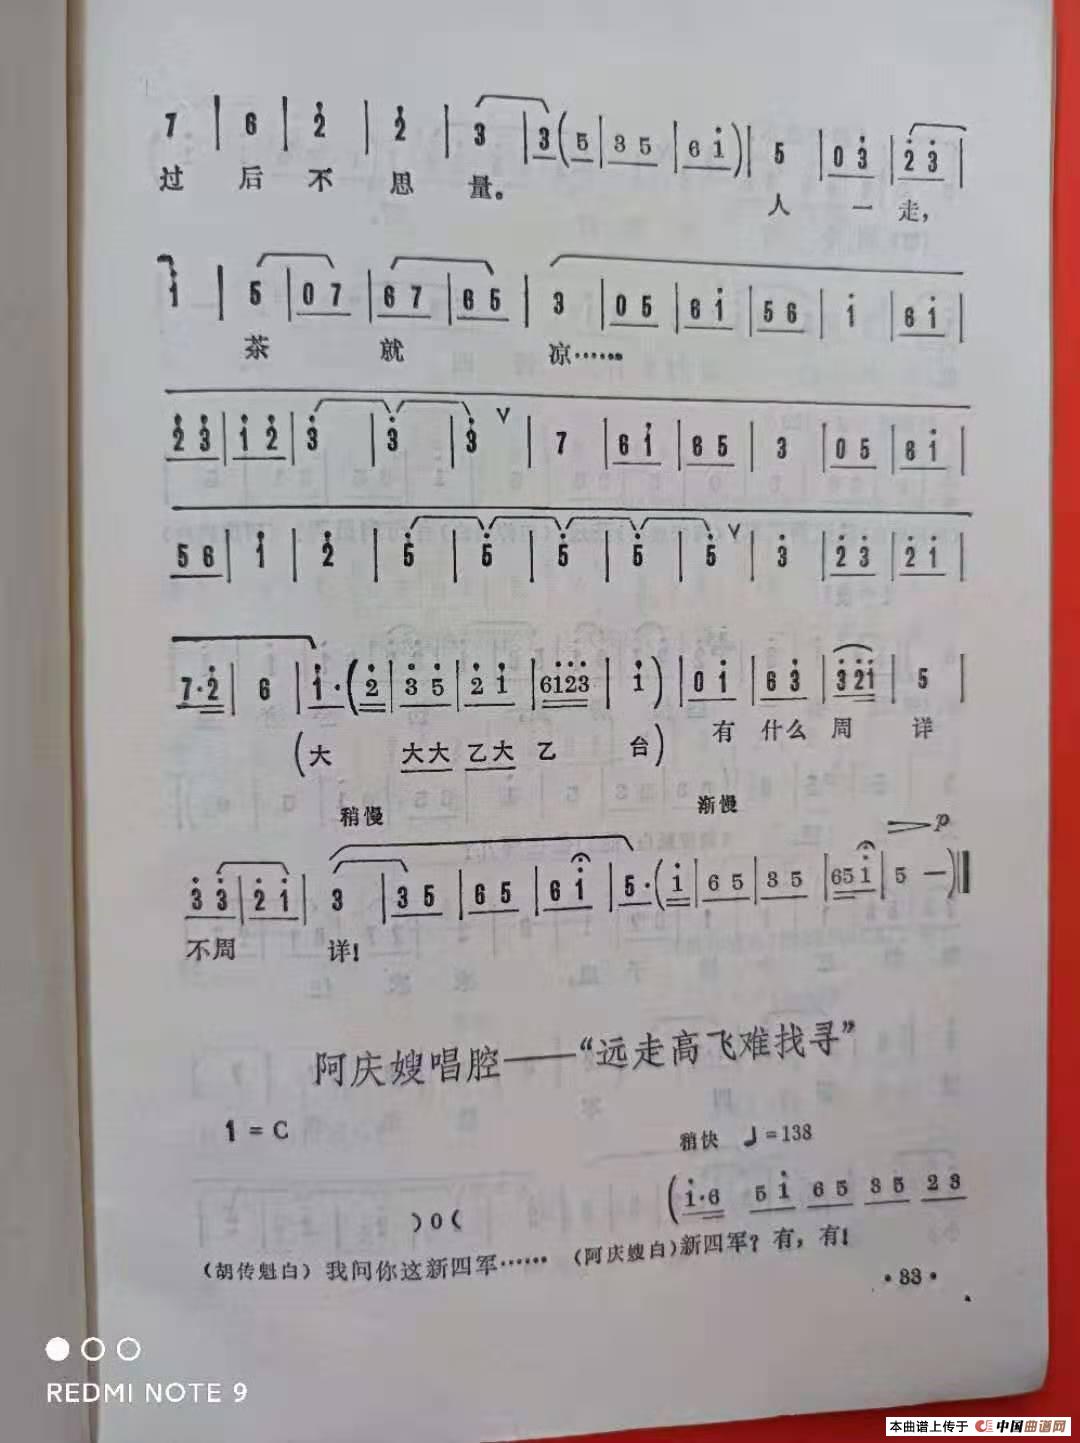 7 | 6 | 2̇ | 2̇ | 3̇ | 3̇ ( 5 | 3 5 | 6 1̇ ) | 5 | 0 3̇ | 2̇ 3̇ |
过 后 不 思 量。 人 一 走，
1̇ | 5 | 0 7 | 6 7 | 6 5 | 3 | 0 5 | 6 1̇ | 5 6 | 1̇ | 6 1̇ |
茶 就 凉……
2̇ 3̇ | 1̇ 2̇ | 3̇ | 3̇ | 3̇ V | 7 | 6 1̇ | 6 5 | 3 | 0 5 | 6 1̇ |
5 6 | 1̇ | 2̇ | 5̇ | 5̇ | 5̇ | 5̇ | 5̇ V | 3̇ | 2̇ 3̇ | 2̇ 1̇ |
7·2̇ | 6 | 1̇·( 2̇ | 3̇ 5̇ | 2̇ 1̇ | 61̇2̇3̇ | 1̇ ) | 0 1̇ | 6 3̇ | 3̇ 2̇1̇ | 5 |
(大 大大 乙大 乙 台) 有 什么 周 详
稍慢 渐慢
3̇ 3̇ | 2̇ 1̇ | 3 | 3 5 | 6 5 | 6 1̇ | 5·( 1̇ | 6 5 | 3 5 | 65 1̇ | 5 — ) ‖ p
不周 详!
阿庆嫂唱腔——“远走高飞难找寻”
1 = C
稍快 ♩=138
) 0 ( ( 1̇·6 5 1̇ 6 5 3 5 2 3
(胡传魁白) 我问你这新四军…… (阿庆嫂白)新四军？有，有！
·83·
REDMI NOTE 9
本曲谱上传于 中国曲谱网